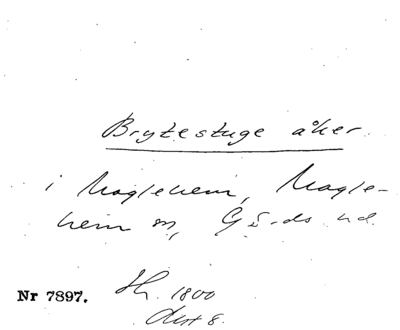 Brytestuge åker
i Maglehem, Magle-
hem sn, Gärds hd.
Nr 7897. Sk. 1800
Akt 8.